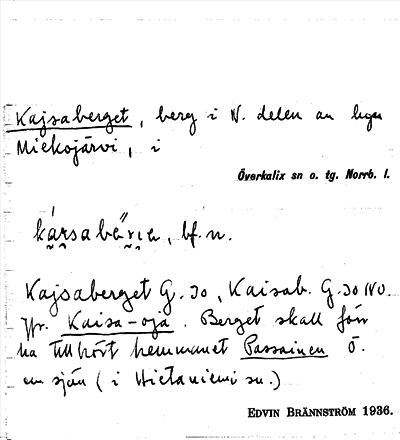 Kajsaberget, berg i N. delen av byn
Miekojärvi, i
Överkalix sn o. tg. Norrb. l.
bf. n.
Kajsaberget G. 30, Kaisab. G. 30 NV.
Jfr. Kaisa-oja. Berget skall förr
ha tillhört hemmanet Passainen ö.
om sjön (i Hietaniemi sn.)
EDVIN BRÄNNSTRÖM 1936.